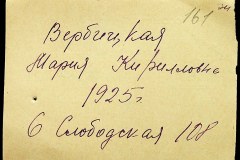 161
Вербицкая
Мария Кирилловна
1925г.
6 Слободская 108